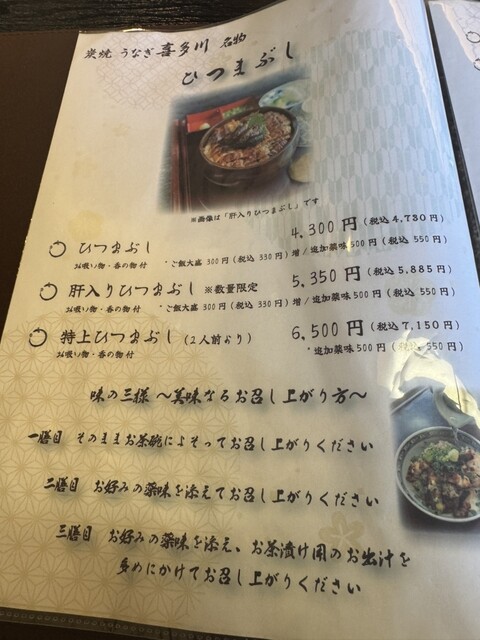 炭焼 うなぎ 喜多川 名物
ひつまぶし
※画像は「肝入りひつまぶし」です
ひつまぶし 4,300円(税込4,730円)
お吸い物・香の物付 ・ご飯大盛 300円(税込 330円)増/追加薬味500円(税込 550円)
肝入りひつまぶし ※数量限定 5,350円(税込5,885円)
お吸い物・香の物付 ・ご飯大盛 300円(税込 330円)増/追加薬味500円(税込 550円)
特上ひつまぶし(2人前より) 6,500円(税込7,150円)
お吸い物・香の物付 ・追加薬味500円(税込 550円)
味の三様 〜美味なるお召し上がり方〜
一膳目 そのままお茶碗によそってお召し上がりください
二膳目 お好みの薬味を添えてお召し上がりください
三膳目 お好みの薬味を添え、お茶漬け用のお出汁を
多めにかけてお召し上がりください